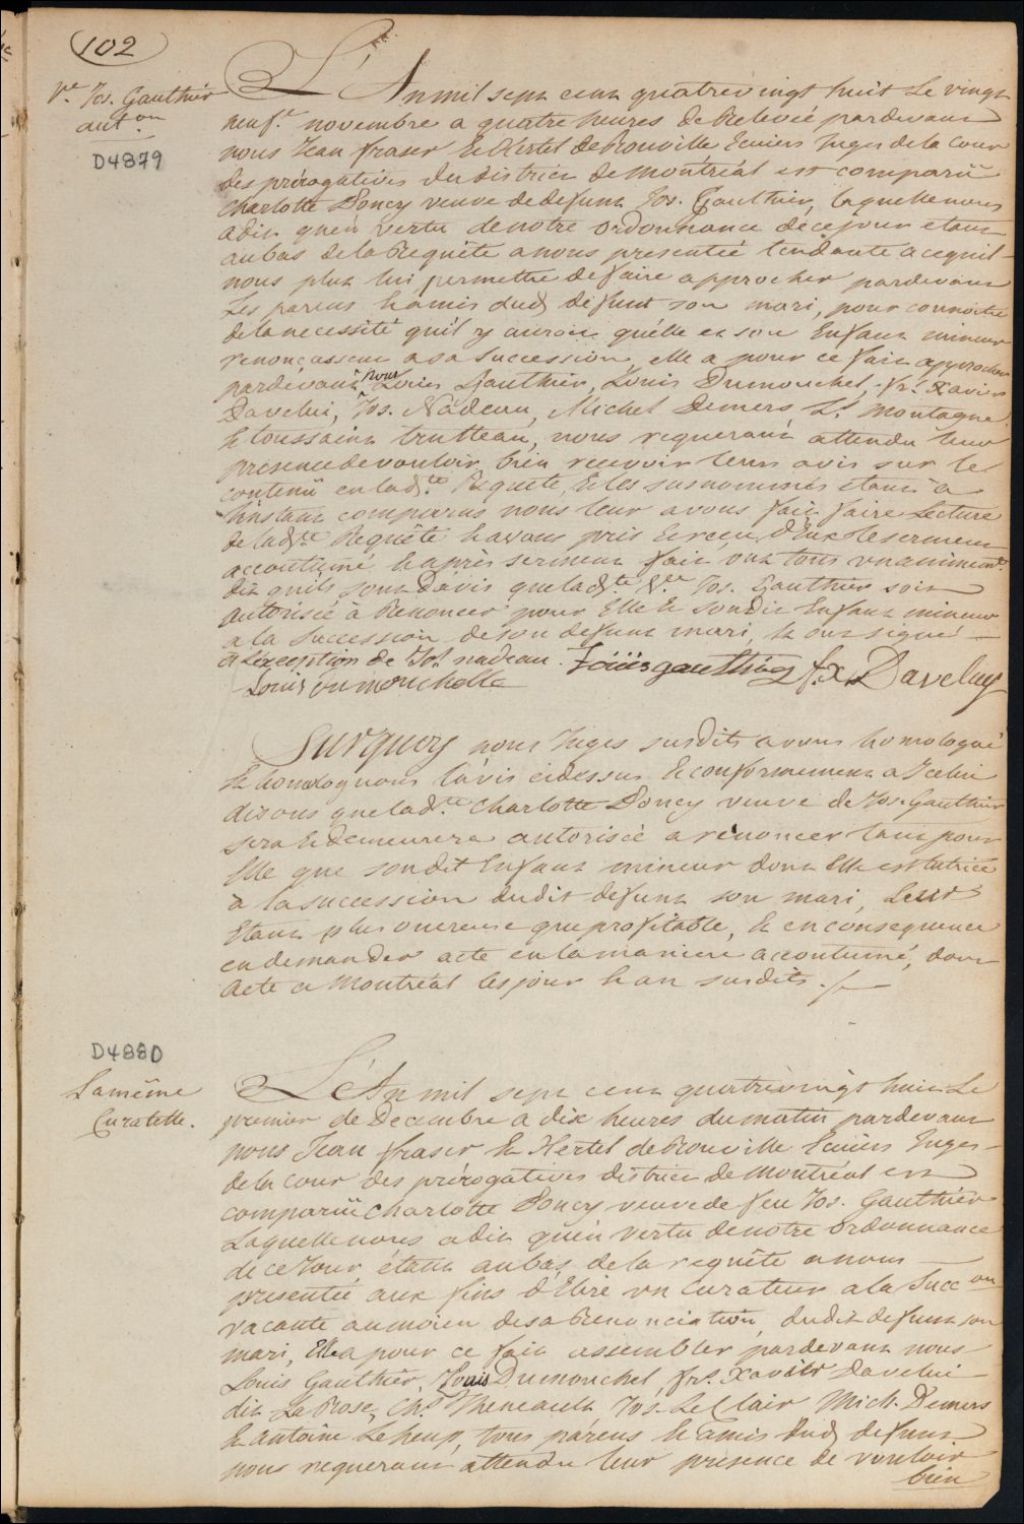 102
Ve. Jos. Gauthier
auton
D4879
L'An mil sept cent quatrevingt huit Le vingt
neuf.e novembre a quatre heures de Relevée pardevant
nous Jean fraser & Hertel de Rouville Ecuiers Juges de la Cour
des prérogatives du district de Montréal est comparüe
Charlotte Poncy veuve de defunt Jos. Gauthier, laquelle nous
a dit qu'en vertu de notre ordonnance de ce jour etant
au bas de la Requête a nous presentée tendante a ce qu'il
nous plut lui permettre de faire approcher pardevant
Les parens & amis dud. défunt son mari, pour connoitre
de la necessité qu'il y auroit qu'elle et son Enfant mineur
renonçassent a sa succession, elle a pour ce fait approcher
pardevant nous Louis Gauthier, Louis Dumouchel, fr. Xavier
Davelui, Jos. Nadeau, Michel Demers Lt. Montagne
& toussaint trutteau, nous requerant attendu leur
presence de vouloir bien recevoir leurs avis sur le
contenü en lad.te Requete, & les susnommés étant a
l'instant comparus nous leur avons fait faire Lecture
de lad.te Requête & avons pris & reçu d'Eux le serment
accoutumé & après serment fait ont tous unanimemt.
dit qu'ils sont d'avis que lad.te Ve. Jos. Gauthier soit
autorisée à Renoncer pour Elle & son dit Enfant mineur
a la succession de son defunt mari, & ont signé
a l'exception de Jos. nadeau. Loüis gauthier f.x Daveluy
Louis Dumouchelle
Surquoy nous Juges susdits avons homologué
& homologuons l'avis cidessus & conformement a Icelui
disons que lad.te Charlotte Poncy veuve de Jos. Gauthier
sera & demeurera autorisée a renoncer tant pour
Elle que son dit Enfant mineur dont Elle est tutrice
à la succession dudit defunt son mari, Leur
Etant plus onereuse que profitable, & en consequence
en demander acte en la maniere accoutumé, dont
acte a Montréal les jour & an susdits. /.
D4880
La même
Curatelle.
L'An mil sept cent quatrevingt huit Le
premier de Decembre a dix heures du matin pardevant
nous Jean fraser & Hertel de Rouville Ecuiers Juges
de la cour des prérogatives district de Montréal est
comparüe Charlotte Poncy veuve de feu Jos. Gauthier
Laquelle nous a dit qu'en vertu de notre ordonnance
de ce Jour étant au bas de la requête a nous
presentée aux fins d'Elire un curateur a la Succon
vacante au moien de sa Renonciation, dudit defunt son
mari, Elle a pour ce fait assembler pardevant nous
Louis Gauthier, Louis Dumouchel, fr. Xavier Davelui
dit La Rose, Chs. Theneault Jos. LeClair Mich. Demers
& Antoine Leheup, tous parens & amis dud. defunt
nous requerant attendu leur presence de vouloir
bien